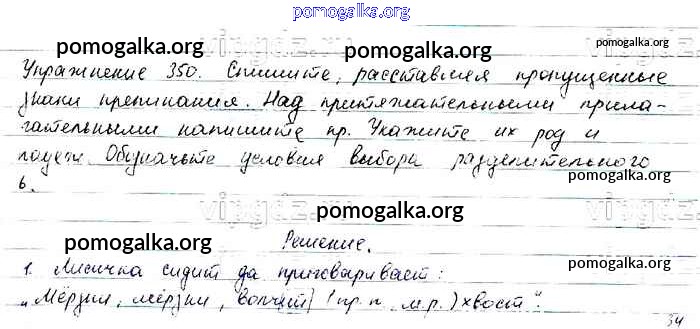 pomogalka.org
pomogalka.org pomogalka.org
Упражнение 350. Спишите, расставляя пропущенные
знаки препинания. Над притяжательными прила-
гательными напишите пр. Укажите их род и
падеж. Обозначьте условия выбора разделительного
ь.
pomogalka.org
vipgdz.ru
pomogalka.org
pomogalka.org
Решение.
1. Лисичка сидит да приговаривает:
„Мёрзни, мёрзни, волчий (пр. п. м.р.) хвост".
pomogalka.org
34